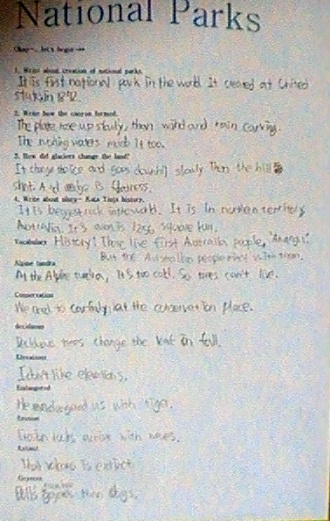 National Parks
Okay~. let's begin~~
1. Write about creation of national parks.
It is first national park in the world. It created at United
States in 1872.
2. Write how the canyon formed.
The plate rose up slowly, than wind and rain carving.
The rushing waters made it too.
3. How did glaciers change the land?
It change the ice and goes downhill slowly Than the hill is
4. Write about story- Kata Tjuta history.
It is biggest rock in the world. It is in northern territory
Australia. It's area is 1256 square km.
Vocabulary History: There live first Australia people, "Anangu".
But the Australian people mixed with them.
Alpine tundra
At the Alpine tundra, It's too cold. So trees can't live.
Conservation
We need to carefuly at the conservation place.
deciduous
Deciduous trees change the leaf in fall.
Elevations
I don't like elevations.
Endangered
He endangered us with tiger.
Erosion
Erosion rocks with waves.
Extinct
That volcano is extinct
Geysers
geysers than dogs.